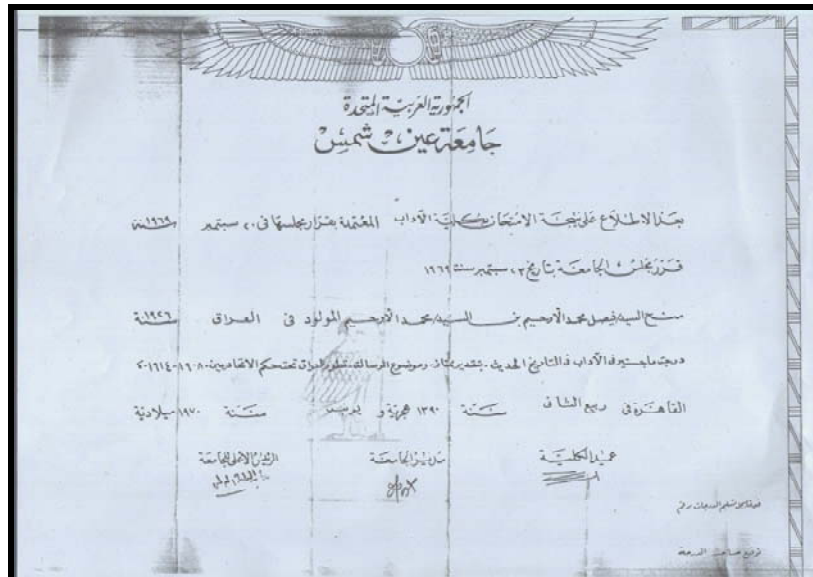 الجمهورية العربية المتحدة
جامعة عين شمس
بعد الاطلاع على نتيجة الامتحان بكلية الآداب المعتمدة بقرار مجلسها في سبتمبر سنة ١٩٦٩
قرر مجلس الجامعة بتاريخ سبتمبر سنة ١٩٦٩
منح السيد/ فيصل محمد الارحيم بن السيد/ محمد الارحيم المولود في العراق سنة ١٩٢٦
درجة ماجستير في الآداب في التاريخ الحديث بتقدير ممتاز وموضوع الرسالة تطور العراق تحت حكم
القاهرة في ربيع الثاني سنة ١٣٩٠ هجرية و سنة ١٩٧٠ ميلادية
عميد الكلية
مدير الجامعة
الرئيس الأعلى للجامعة
توقيع صاحب الدرجة